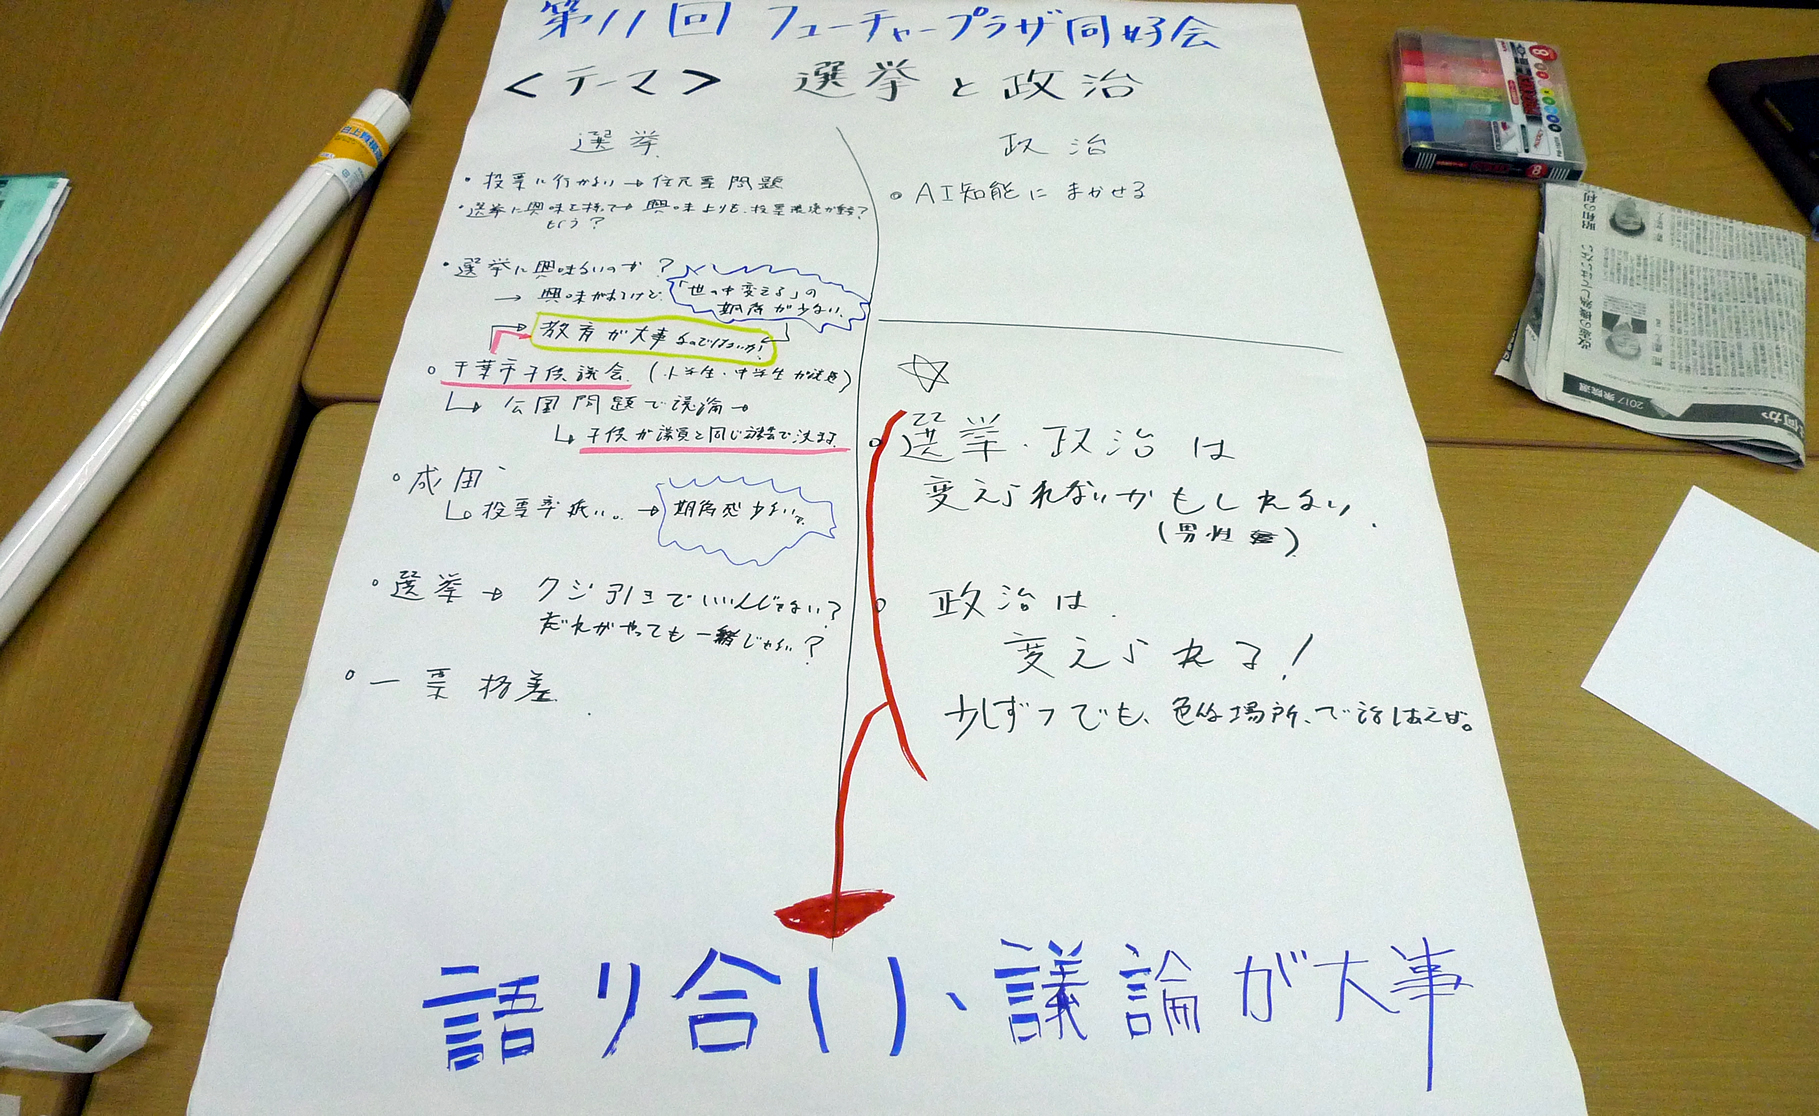 第11回 フューチャープラザ同好会
<テーマ> 選挙と政治
選挙
・投票に行かない→住民票問題
・選挙に興味を持って→興味よりも、投票環境が重要?
もらう?
・選挙に興味ないのか?
→ 興味があるけど
「世の中変える」の
期待が少ない
教育が大事なのではないか!
○千葉市子供議会 (小学生・中学生が
↳ 公園問題で議論→
↳ 子供が議員と同じ
○成田
↳投票率低い。→期待感少ない。
○選挙→ クジ引きでいいんじゃない?
だれがやっても一緒じゃない?
○一票格差
政治
○AI知能にまかせる
☆
○選挙・政治は
変えられないかもしれない
(男性
○政治は
変えられる!
少しずつでも、色んな場所、で話しあえば。
語り合い、議論が大事
昭和の利
改憲の機熟してはいない
2017 衆院選
何か